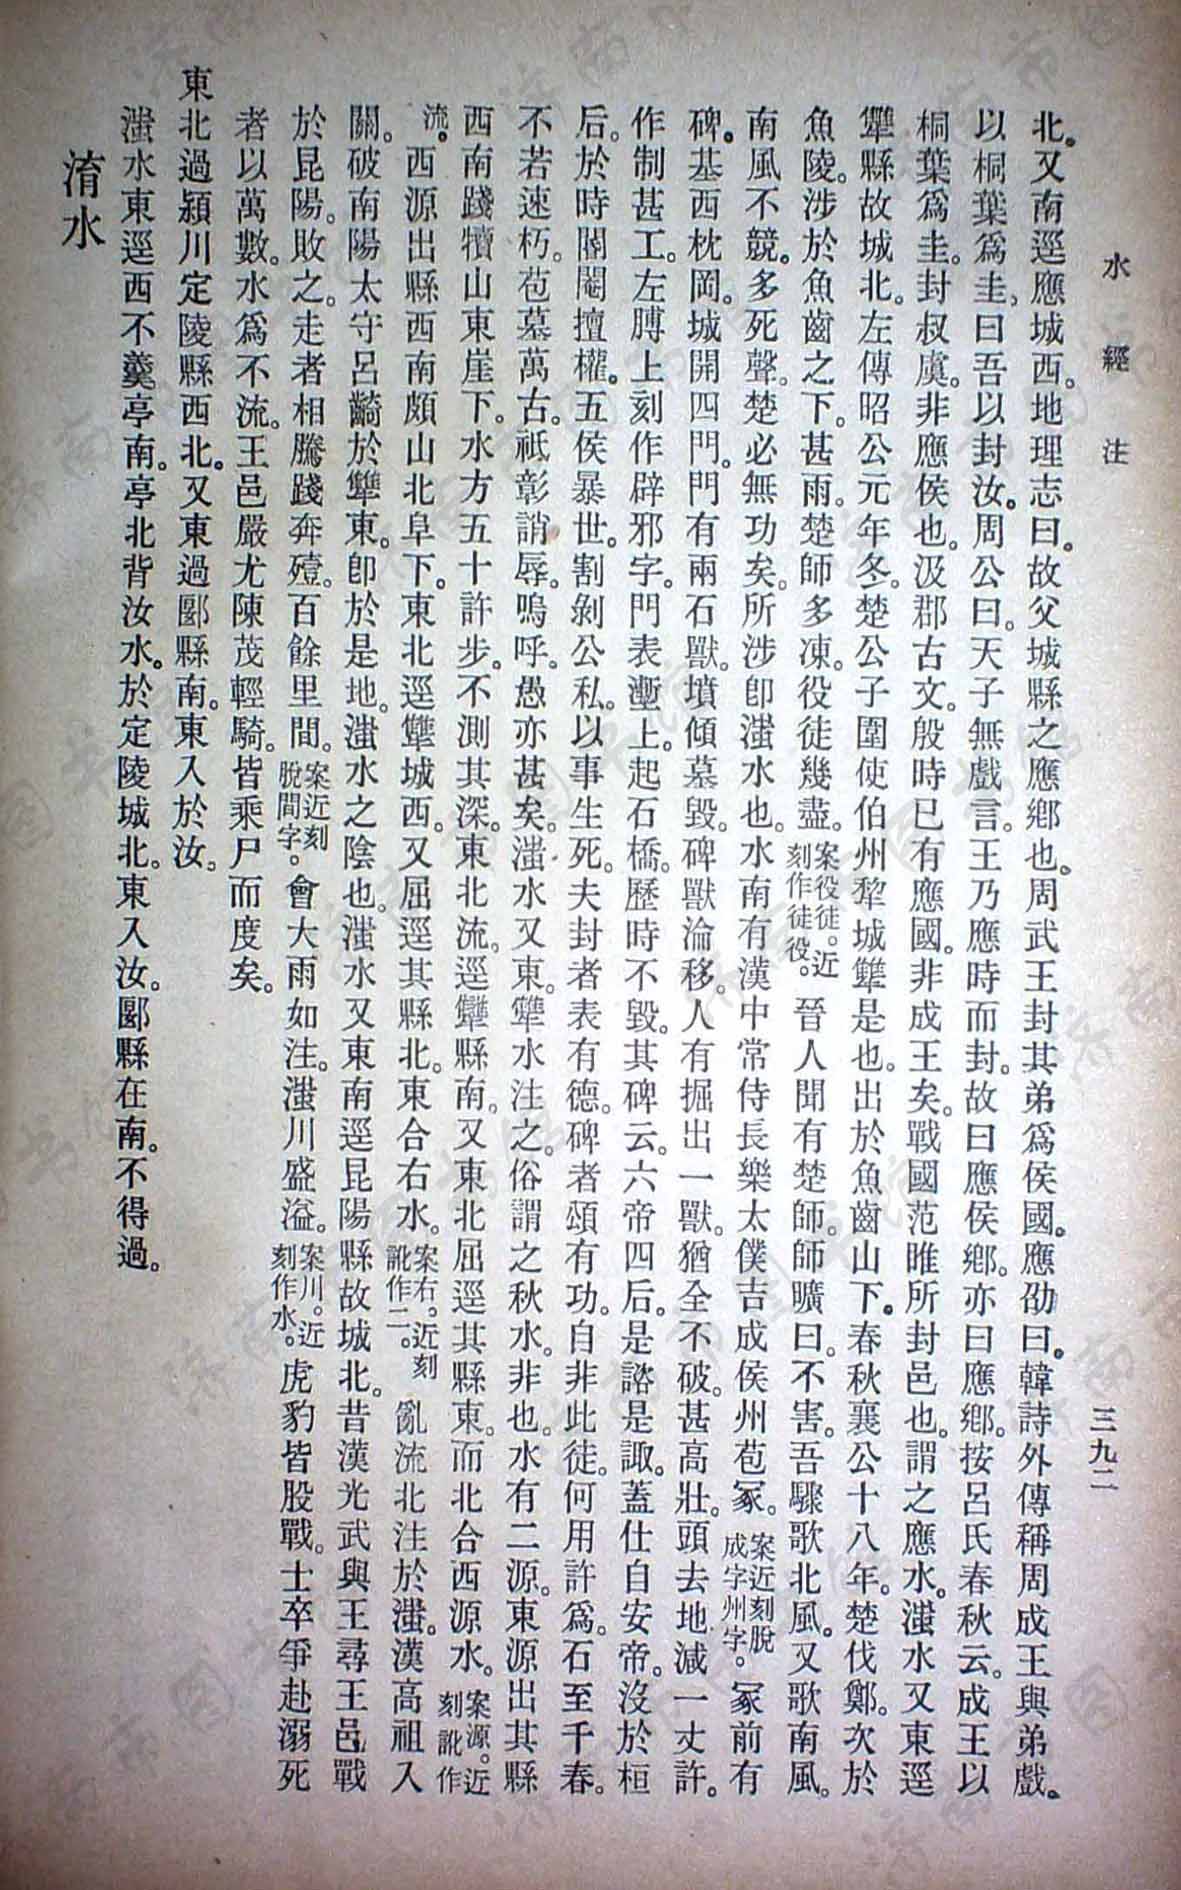 水經注
三九二
北。又南逕應城西。地理志曰。故父城縣之應鄉也。周武王封其弟爲侯國。應劭曰。韓詩外傳稱周成王與弟戲。
以桐葉爲圭。曰吾以封汝。周公曰。天子無戲言。王乃應時而封。故曰應侯鄉。亦曰應鄉。按呂氏春秋云。成王以
桐葉爲圭。封叔虞。非應侯也。汲郡古文。殷時已有應國。非成王矣。戰國范雎所封邑也。謂之應水。滍水又東逕
犨縣故城北。左傳昭公元年冬。楚公子圍使伯州犂城犨是也。出於魚齒山下。春秋襄公十八年。楚伐鄭。次於
魚陵。涉於魚齒之下。甚雨。楚師多凍。役徒幾盡。案役徒。近刻作徒役。晉人聞有楚師。師曠曰。不害。吾驟歌北風。又歌南風。
南風不競。多死聲。楚必無功矣。所涉卽滍水也。水南有漢中常侍長樂太僕吉成侯州苞冢。案近刻脫成字州字。冢前有
碑。基西枕岡。城開四門。門有兩石獸。墳傾墓毀。碑獸淪移。人有掘出一獸。猶全不破。甚高壯。頭去地減一丈許。
作制甚工。左膊上刻作辟邪字。門表塹上。起石橋。歷時不毀。其碑云。六帝四后。是諮是諏。蓋仕自安帝。沒於桓
后。於時閹閽擅權。五侯暴世。割剝公私。以事生死。夫封者表有德。碑者頌有功。自非此徒。何用許爲。石至千春。
不若速朽。苞墓萬古。祇彰誚辱。嗚呼。愚亦甚矣。滍水又東。犨水注之。俗謂之秋水。非也。水有二源。東源出其縣
西南踐犢山東崖下。水方五十許步。不測其深。東北流。逕犨縣南。又東北屈逕其縣東。而北合西源水。案源。近刻訛作
流。西源出縣西南頗山北阜下。東北逕犨城西。又屈逕其縣北。東合右水。案右。近刻訛作二。亂流北注於滍。漢高祖入
關。破南陽太守呂齮於犨東。卽於是地。滍水之陰也。滍水又東南逕昆陽縣故城北。昔漢光武與王尋王邑戰
於昆陽。敗之。走者相騰踐奔殪。百餘里間。案近刻脫間字。會大雨如注。滍川盛溢。案川。近刻作水。虎豹皆股戰。士卒爭赴溺死
者以萬數。水爲不流。王邑嚴尤陳茂輕騎。皆乘尸而度矣。
東北過潁川定陵縣西北。又東過郾縣南。東入於汝。
滍水東逕西不羹亭南。亭北背汝水。於定陵城北。東入汝。郾縣在南。不得過。
淯水